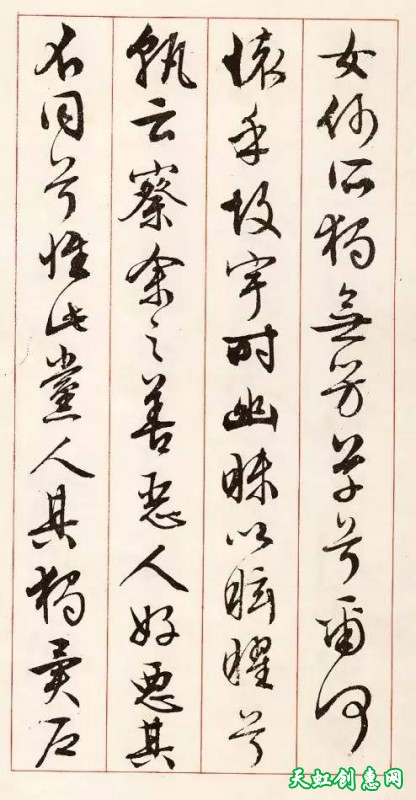 女何所独無芳草兮爾何
懐乎故宇时幽昧以眩曜兮
孰云察余之善惡人好惡其
不同兮惟此黨人其独異戶
天虹创惠网